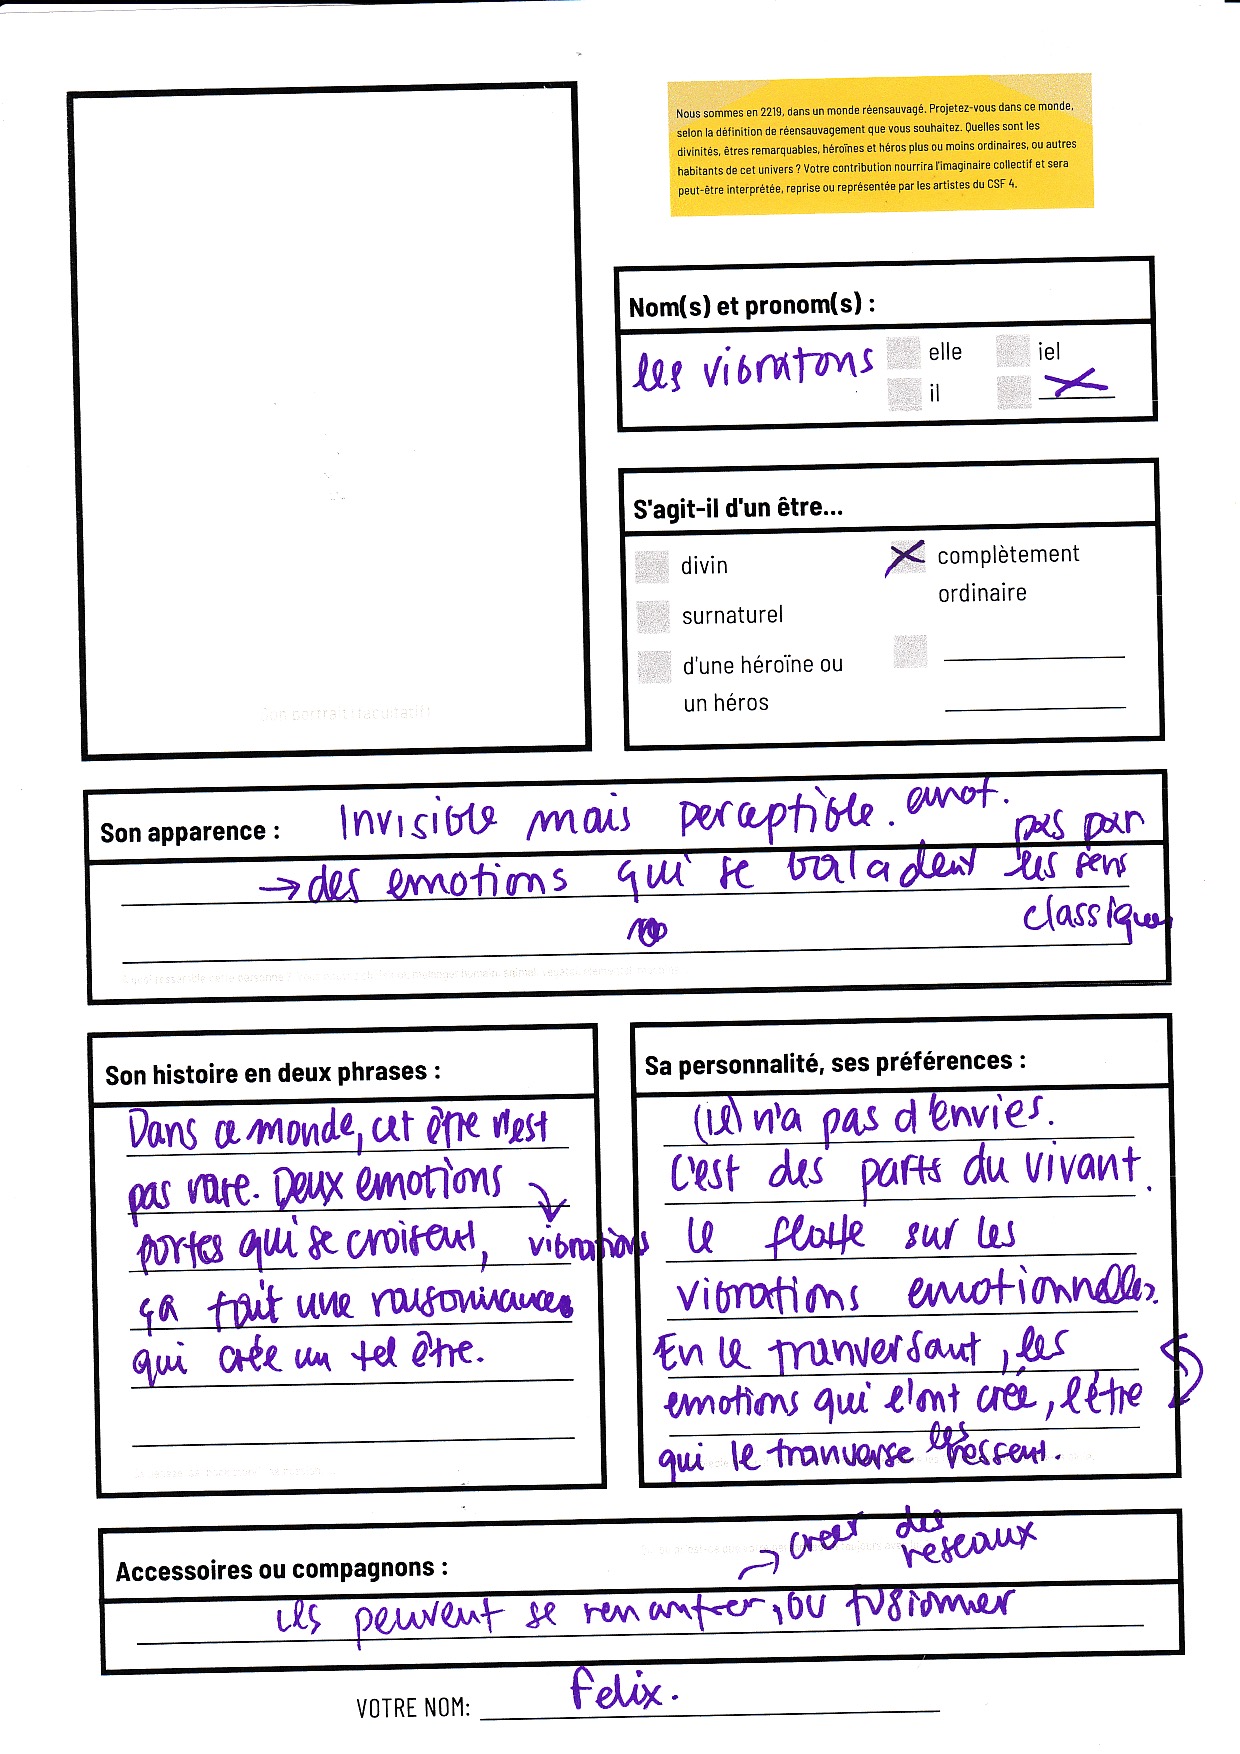 Nous sommes en 2219, dans un monde réensauvagé. Projetez-vous dans ce monde,
selon la définition de réensauvagement que vous souhaitez. Quelles sont les
divinités, êtres remarquables, héroïnes et héros plus ou moins ordinaires, ou autres
habitants de cet univers ? Votre contribution nourrira l'imaginaire collectif et sera
peut-être interprétée, reprise ou représentée par les artistes du CSF 4.
Nom(s) et pronom(s) :
les vibratons
elle
iel
il
S'agit-il d'un être...
divin
complètement
ordinaire
surnaturel
d'une héroïne ou
un héros
Son apparence :
Invisible mais perceptible. emot.
pas par
→ des emotions qui se baladent
les sens
classiques
Son portrait (facultatif)
Son histoire en deux phrases :
Dans ce monde, cet être n'est
pas rare. Deux emotions
fortes qui se croisent, vibrations
ça fait une
qui crée un tel être.
Sa personnalité, ses préférences :
(il) n'a pas d'envies.
C'est des parts du vivant.
Il flotte sur les
vibrations emotionnelles.
En le tranversant, les
emotions qui l'ont créé, l'être
qui le tranverse les ressent.
Accessoires ou compagnons :
→ creer des
reseaux
ils peuvent se rencontrer, ou fusionner
VOTRE NOM: Felix.